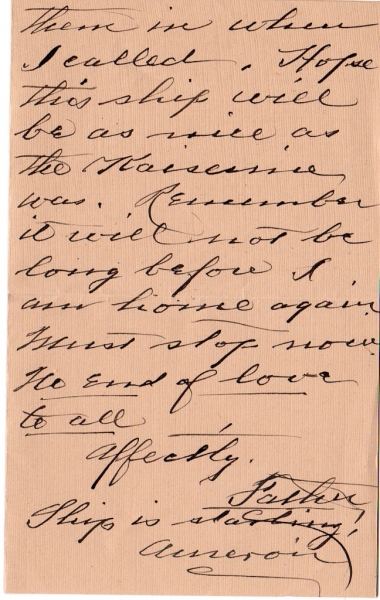 them in when
I called. Hope
this ship will
be as nice as
the Kaiserine
was. Remember
it will not be
long before I
am home again
Must stop now.
No end of love
to all
Affectly.
Father
Ship is starting!